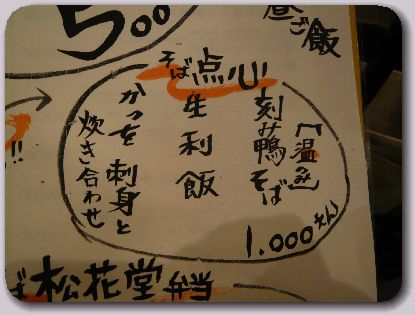 昼ご飯
500
そば点心
【温】
刻み鴨そば
生利飯
かつを刺身と
炊き合わせ
1.000えん
!!
ば松花堂弁当